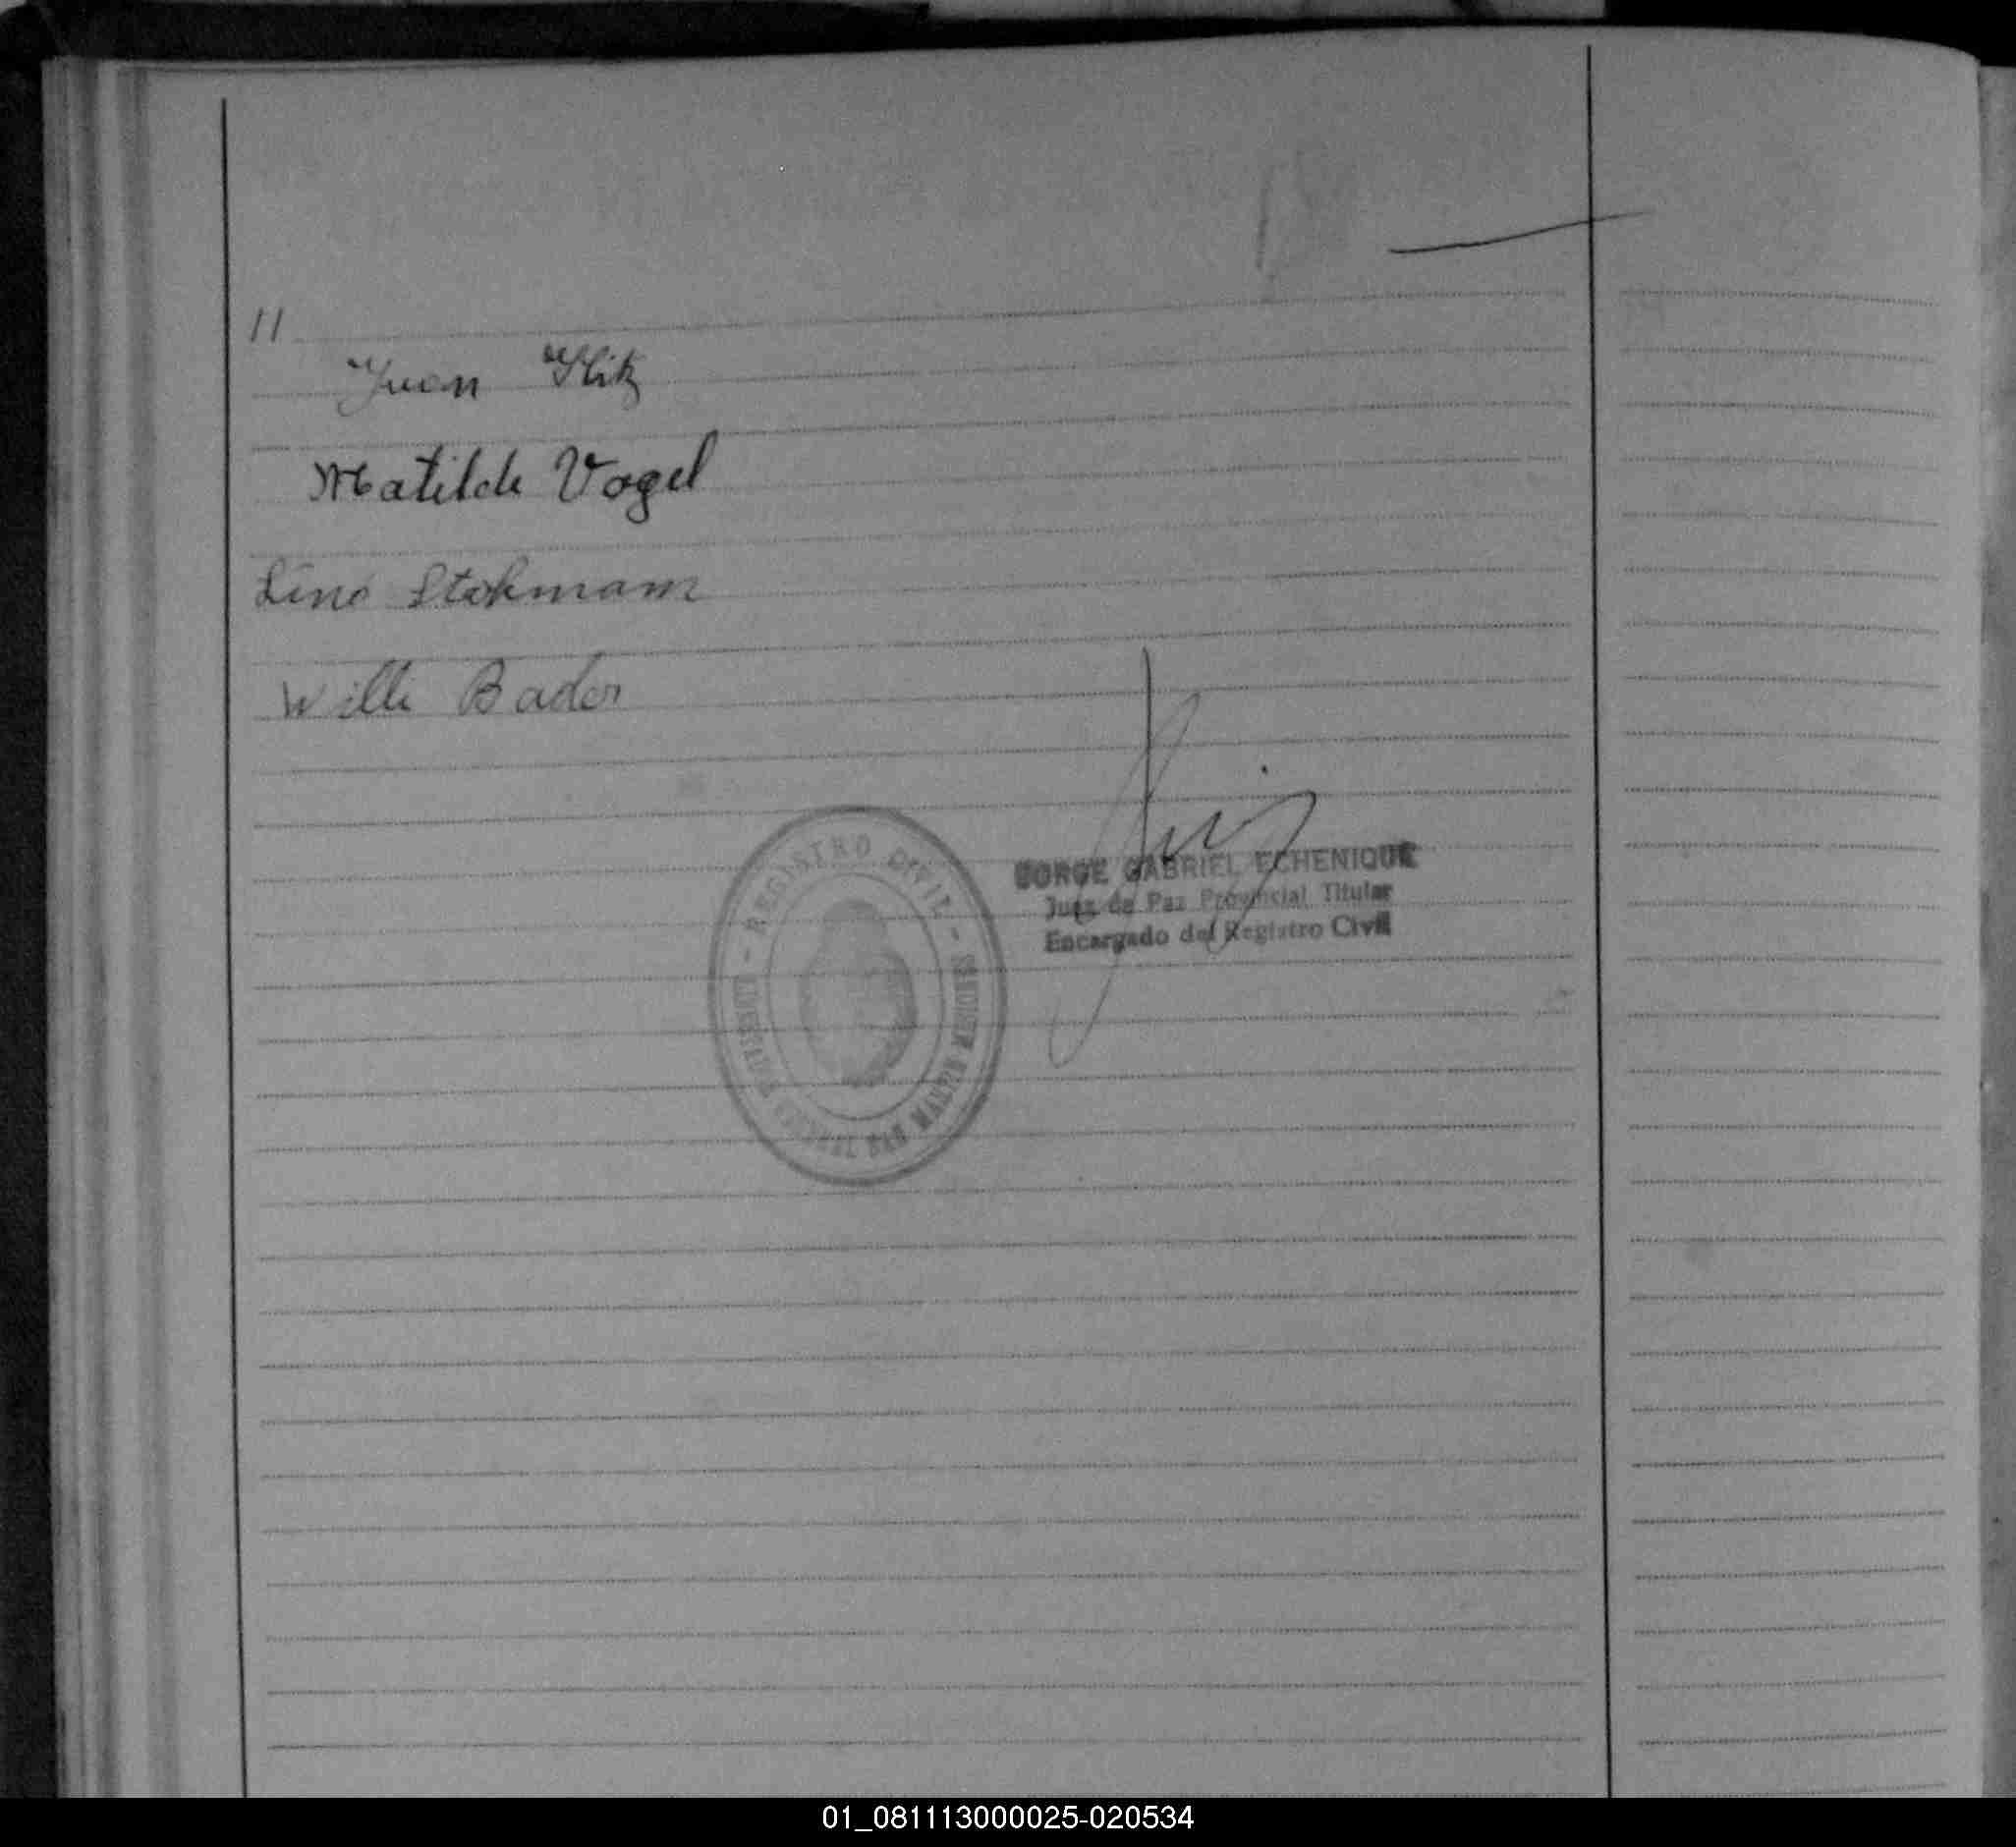 11
Juan Hitz
Matilde Vogel
Lino Stokmam
Willi Bader
REGISTRO CIVIL
JORGE GABRIEL ECHENIQUE
Juez de Paz Provincial Titular
Encargado del Registro Civil
01_081113000025-020534